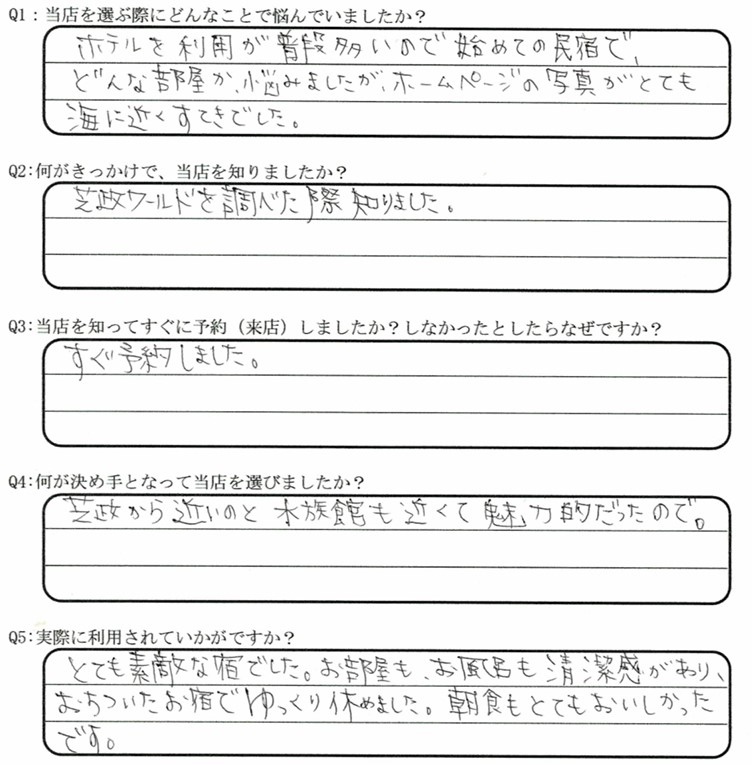 Q1：当店を選ぶ際にどんなことで悩んでいましたか？
ホテルを利用が普段多いので始めての民宿で、
どんな部屋か、悩みましたが、ホームページの写真がとても
海に近くすてきでした。
Q2:何がきっかけで、当店を知りましたか？
芝政ワールドを調べた際知りました。
Q3:当店を知ってすぐに予約（来店）しましたか？しなかったとしたらなぜですか？
すぐ予約しました。
Q4:何が決め手となって当店を選びましたか？
芝政から近いのと水族館も近くて魅力的だったので。
Q5:実際に利用されていかがですか？
とても素敵な宿でした。お部屋も、お風呂も清潔感があり、
おちついたお宿でゆっくり休めました。朝食もとてもおいしかった
です。